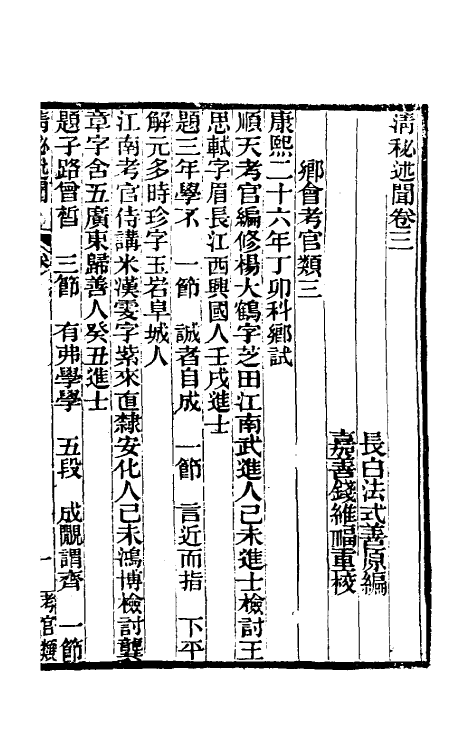 清秘述聞卷三
長白法式善原編
嘉善錢維福重校
鄉會考官類三
康熙二十六年丁卯科鄉試
順天考官編修楊大鶴字芝田江南武進人己未進士檢討王
思軾字眉長江西興國人壬戌進士
題三年學不　一節　誠者自成　一節　言近而指　下平
解元多時珍字玉岩阜城人
江南考官侍講米漢雯字紫來直隸安化人己未鴻博檢討龔
章字含五廣東歸善人癸丑進士
題子路曾晳　三節　有弗學學　五段　成覸謂齊　一節
清秘述聞　卷三　一　考官類